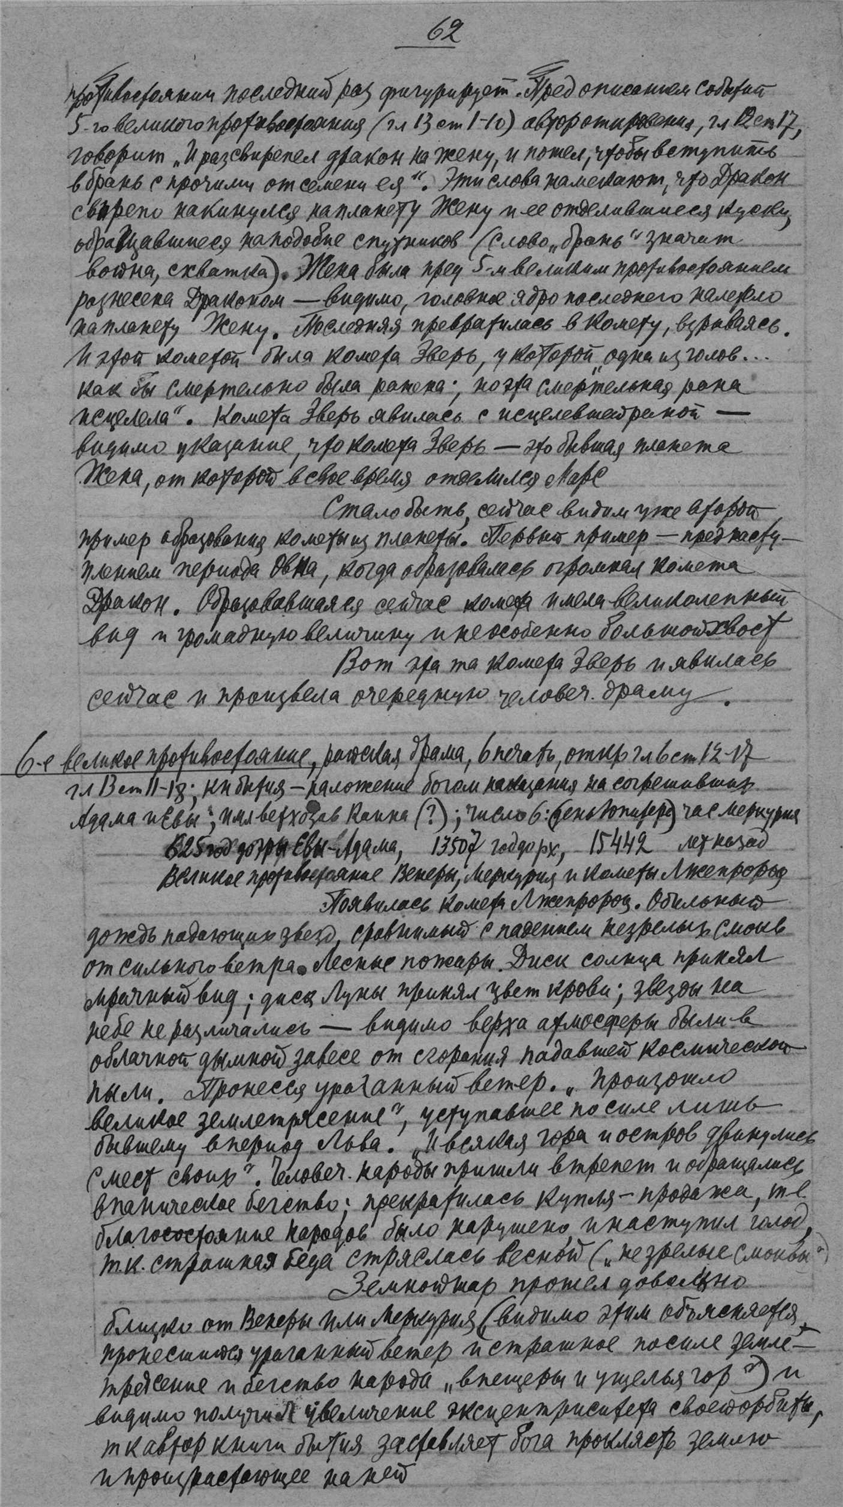 62
противостоянии последний раз фигурирует. Пред описанием событий
5-го великого противостояния (гл 13 ст 1-10) автор откровения, гл 12 ст 17,
говорит „И рассвирепел дракон на жену, и пошел, чтобы вступить
в брань с прочими от семени ея“. Эти слова намекают, что Дракон
свирепо накинулся на планету Жену и ее отделившиеся куски,
обращавшиеся наподобие спутников (слово „брань“ значит
война, схватка). Жена была пред 5-м великим противостоянием
разнесена Драконом — видимо, головное ядро последнего налетело
на планету Жену. Последняя превратилась в комету, взрываясь.
И этой кометой была комета Зверь, у которой „одна из голов...
как бы смертельно была ранена; но эта смертельная рана
исцелела“. Комета Зверь явилась с исцелевшей раной —
видимо указание, что комета Зверь — это бывшая планета
Жена, от которой в свое время отделился Марс
Стало быть, сейчас видим уже второй
пример образования кометы из планеты. Первый пример — пред наступ-
лением периода Овна, когда образовалась огромная комета
Дракон. Образовавшаяся сейчас комета имела великолепный
вид и громадную величину и не особенно большой хвост
Вот эта та комета Зверь и явилась
сейчас и произвела очередную человеч. драму.
6-е великое противостояние, райская драма, 6 печать, откр гл 6 ст 12-17
гл 13 ст 11-18; кн бытия — наложение богом наказания на согрешивших
Адама и Евы; имя верхозав Каина (?); число 6: (день Юпитера) час Меркурия
625 год до эры Евы-Адама, 13507 год до рх, 15442 лет назад
Великое противостояние Венеры, Меркурия и кометы Лжепророц
Появилась комета Лжепророц. Обильный
дождь падающих звезд, сравнимый с падением незрелых смокв
от сильного ветра. Лесные пожары. Диск солнца принял
мрачный вид; диск Луны принял цвет крови; звезды на
небе не различались — видимо верха атмосферы были в
облачной дымной завесе от сгорания падавшей космической
пыли. Пронесся ураганный ветер. „Произошло
великое землетрясение“, уступавшее по силе лишь
бывшему в период Льва. „И всякая гора и остров двинулись
с мест своих“. Человеч. народы пришли в трепет и обращались
в паническое бегство; прекратилась купля-продажа, т.е.
благосостояние народов было нарушено, и наступил голод,
т.к. страшная беда стряслась весной („незрелые смоквы“)
Земной шар прошел довольно
близко от Венеры или Меркурия (видимо этим объясняется
пронесшийся ураганный ветер и страшное по силе земле-
трясение и бегство народа „в пещеры и ущелья гор“) и
видимо получил увеличение эксцентриситета своей орбиты,
т к автор книги бытия заставляет бога проклясть землю
и произрастающее на ней